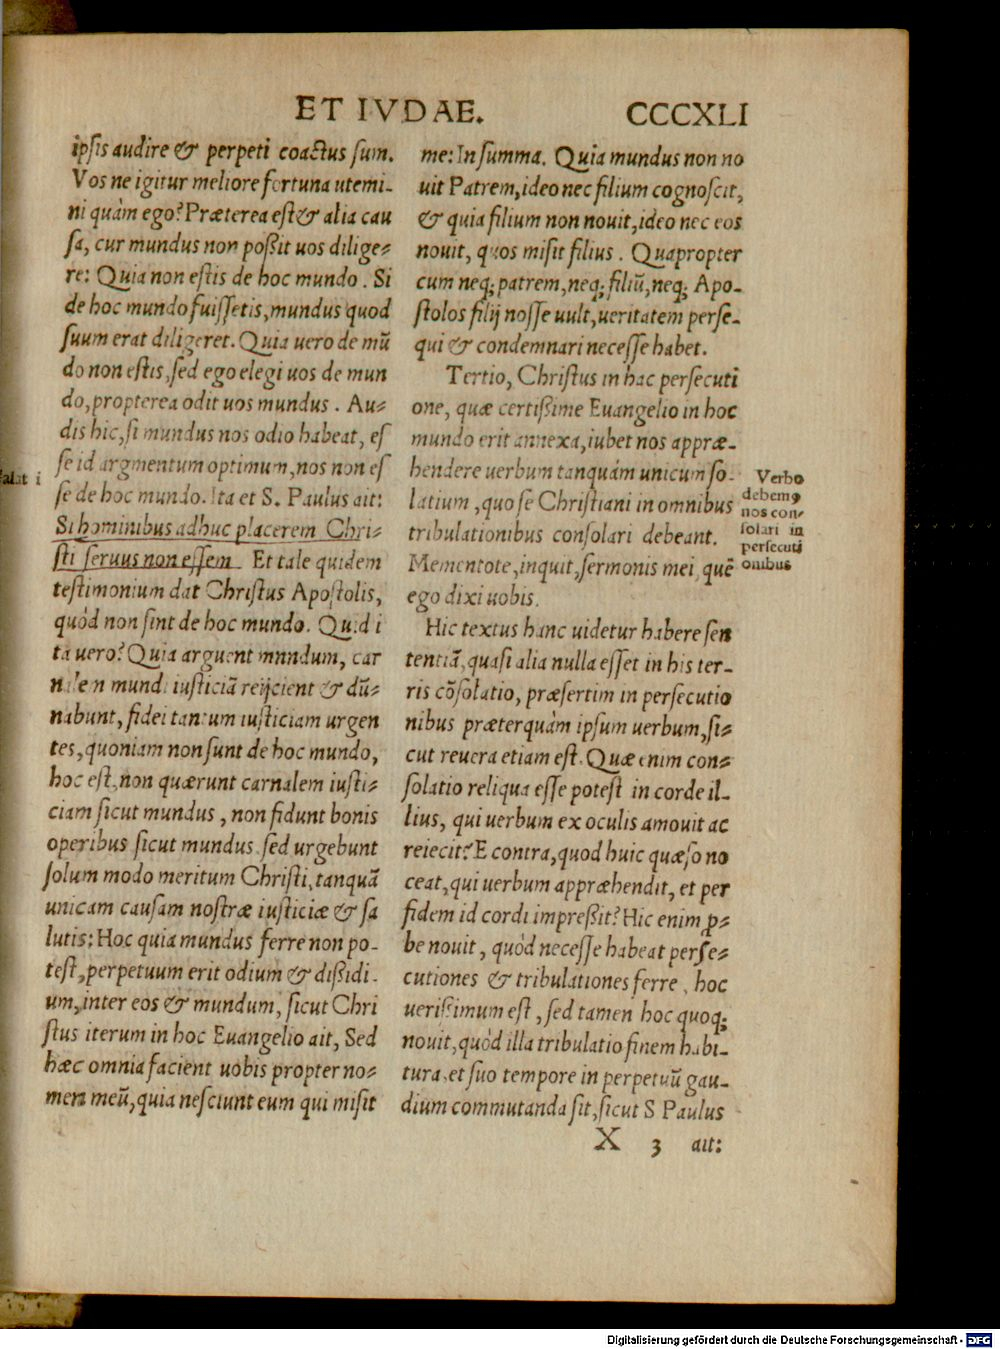 ET IVDAE.
CCCXLI
ipſis audire & perpeti coactus ſum.
Vos ne igitur meliore fortuna utemi-
ni quàm ego? Præterea eſt & alia cau
ſa, cur mundus non poßit uos dilige-
re: Quia non eſtis de hoc mundo. Si
de hoc mundo fuiſſetis, mundus quod
ſuum erat diligeret. Quia uero de mū
do non eſtis, ſed ego elegi uos de mun
do, propterea odit uos mundus. Au-
dis hic, ſi mundus nos odio habeat, eſ
ſe id argmentum optimum, nos non eſ
ſe de hoc mundo. Ita et S. Paulus ait:
Si hominibus adhuc placerem Chri-
ſti ſeruus non eſſem Et tale quidem
teſtimonium dat Chriſtus Apoſtolis,
quòd non ſint de hoc mundo. Quid i
ta uero? Quia arguent mnndum, car
nalem mundi iuſticiā reijcient & dā-
nabunt, fidei tantum iuſticiam urgen
tes, quoniam non ſunt de hoc mundo,
hoc eſt, non quærunt carnalem iuſti-
ciam ſicut mundus, non fidunt bonis
operibus ſicut mundus ſed urgebunt
ſolum modo meritum Chriſti, tanquā
unicam cauſam noſtræ iuſticiæ & ſa
lutis: Hoc quia mundus ferre non po-
teſt, perpetuum erit odium & dißidi-
um, inter eos & mundum, ſicut Chri
ſtus iterum in hoc Euangelio ait, Sed
hæc omnia facient uobis propter no-
men meū, quia neſciunt eum qui miſit
me: In ſumma. Quia mundus non no
uit Patrem, ideo nec filium cognoſcit,
& quia filium non nouit, ideo nec eos
nouit, quos miſit filius. Quapropter
cum neq; patrem, neq; filiū, neq; Apo-
ſtolos filij noſſe uult, ueritatem perſe-
qui & condemnari neceſſe habet.
Tertio, Chriſtus in hac perſecuti
one, quæ certißime Euangelio in hoc
mundo erit annexa, iubet nos appræ-
hendere uerbum tanquám unicum ſo-
latium, quo ſe Chriſtiani in omnibus
tribulationibus conſolari debeant.
Mementote, inquit, ſermonis mei, quē
ego dixi uobis.
Hic textus hanc uidetur habere ſen
tentiā, quaſi alia nulla eſſet in his ter-
ris cōſolatio, præſertim in perſecutio
nibus præterquàm ipſum uerbum, ſi-
cut reuera etiam eſt. Quæ enim con-
ſolatio reliqua eſſe poteſt in corde il-
lius, qui uerbum ex oculis amouit ac
reiecit? E contra, quod huic quæſo no
ceat, qui uerbum appræhendit, et per
fidem id cordi impreßit? Hic enim ꝓ-
be nouit, quòd neceſſe habeat perſe-
cutiones & tribulationes ferre, hoc
uerißimum eſt, ſed tamen hoc quoq;
nouit, quòd illa tribulatio finem habi-
tura, et ſuo tempore in perpetuū gau-
dium commutanda ſit, ſicut S Paulus
X 3 ait:
alat i
Verbo
debemꝰ
nos con-
ſolari in
perſecuti
onibus
Digitalisierung gefördert durch die Deutsche Forschungsgemeinschaft - DFG